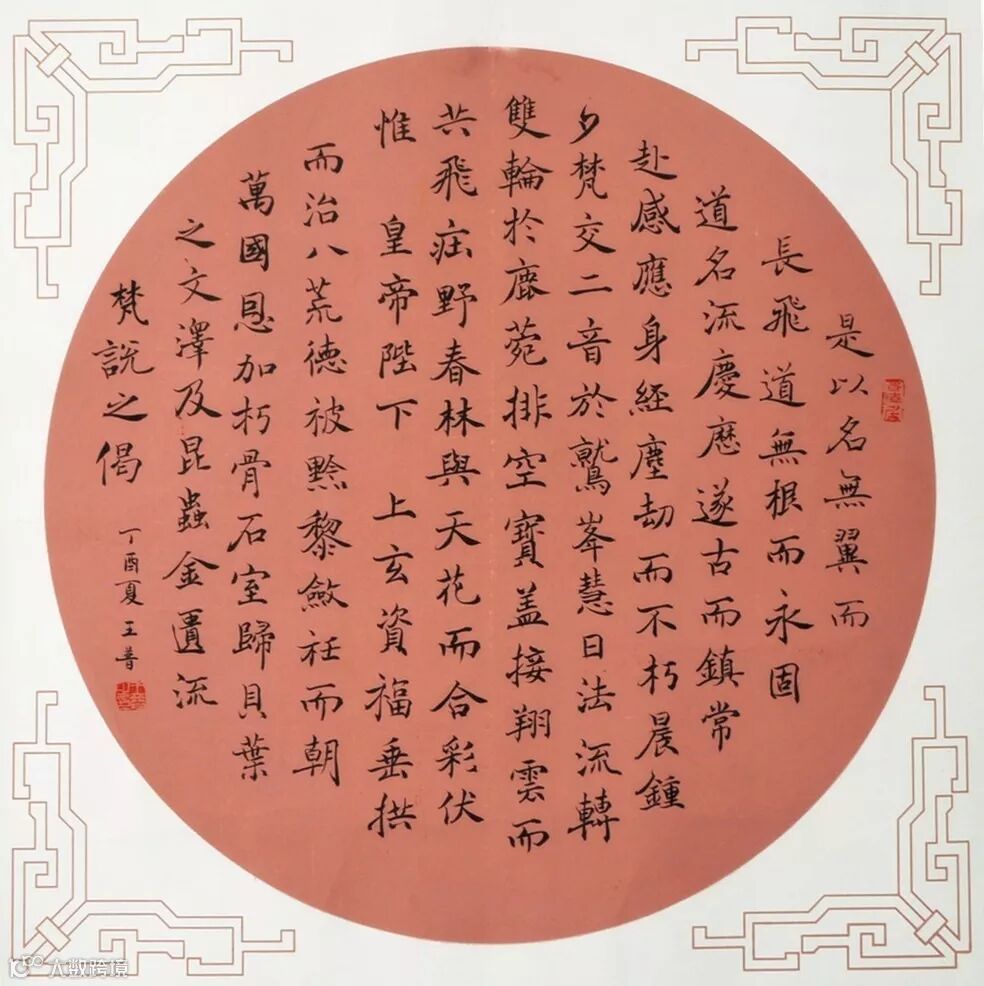 是以名無翼而
長飛道無根而永固
道名流慶歷遂古而鎮常
赴感應身經塵劫而不朽晨鍾
夕梵交二音於鷲峯慧日法流轉
雙輪於鹿菀排空寶盖接翔雲而
共飛莊野春林與天花而合彩伏
惟皇帝陛下上玄資福垂拱
而治八荒德被黔黎斂衽而朝
萬國恩加朽骨石室歸貝葉
之文澤及昆蟲金匱流
梵說之偈
丁酉夏王普
大数跨境